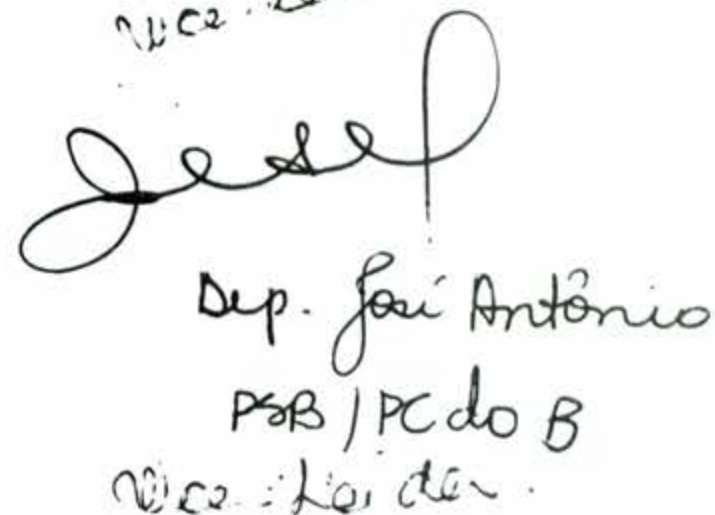 Vice
Dep. José Antônio
PSB / PC do B
Vice-Lider.